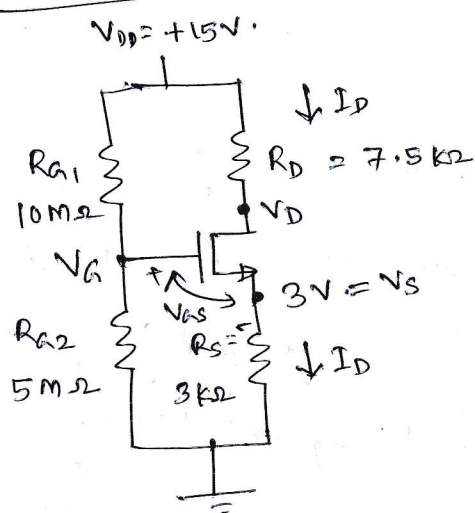 VDD = +15V.
↓ ID
RG1
10MΩ
RD = 7.5 kΩ
VD
VG
+
VGS
-
3V = VS
RG2
5MΩ
RS =
3kΩ
↓ ID